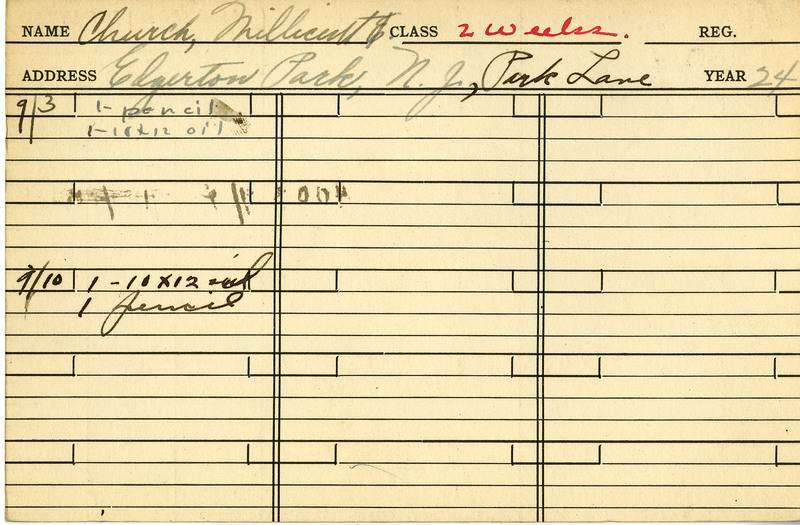 NAME Church, Millicent E. CLASS 2 Weeks. REG.
ADDRESS Edgerton Park, N. J., Park Lane YEAR 24
9/3 1- pencil
1-10x12 oil
9/10 1-10x12 oil
1 pencil